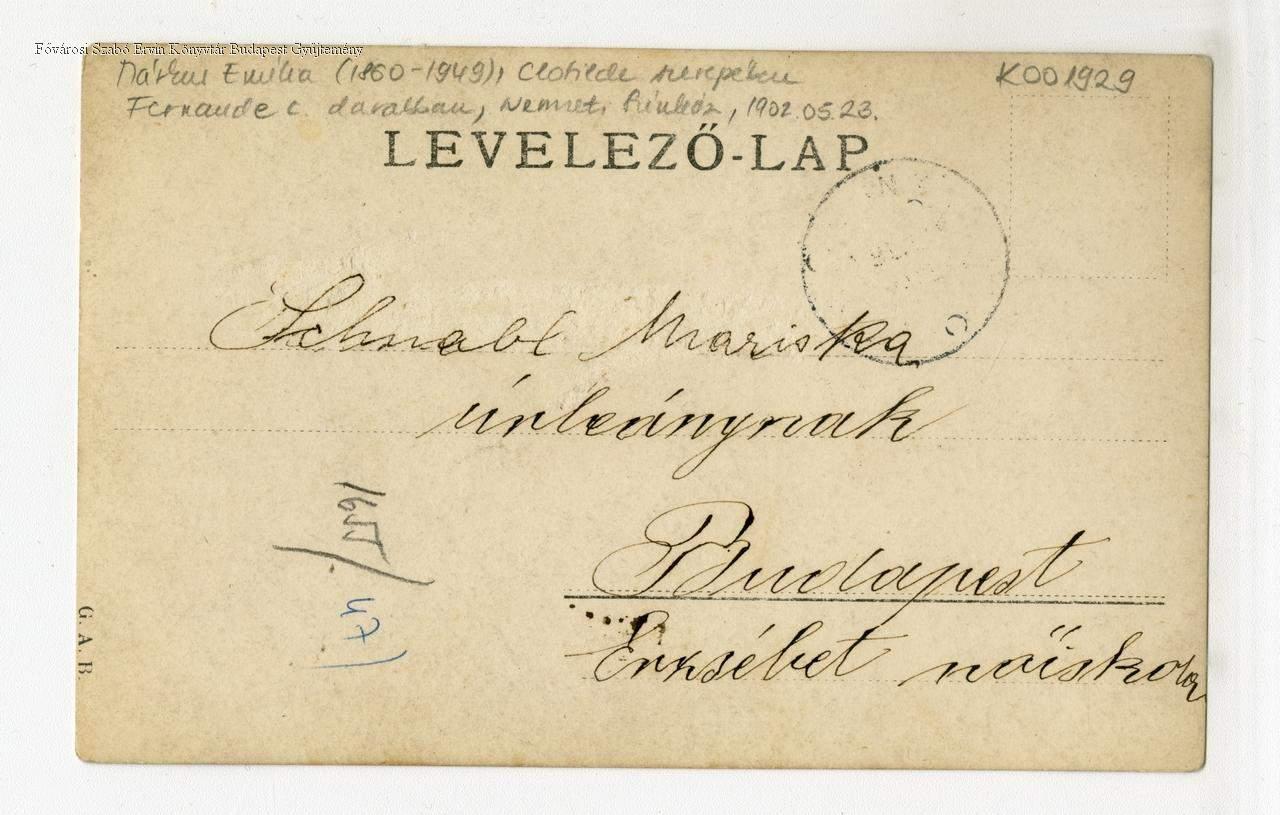 Fővárosi Szabó Ervin Könyvtár Budapest Gyűjtemény
Márkus Emília (1860-1949), Clotilde szerepében
K001929
Fernande c. darabban, Nemzeti Színház, 1902.05.23.
LEVELEZŐ-LAP.
Schnabl Mariska
úrleánynak
Budapest
Erzsébet nőiskola
47
G. A. B.